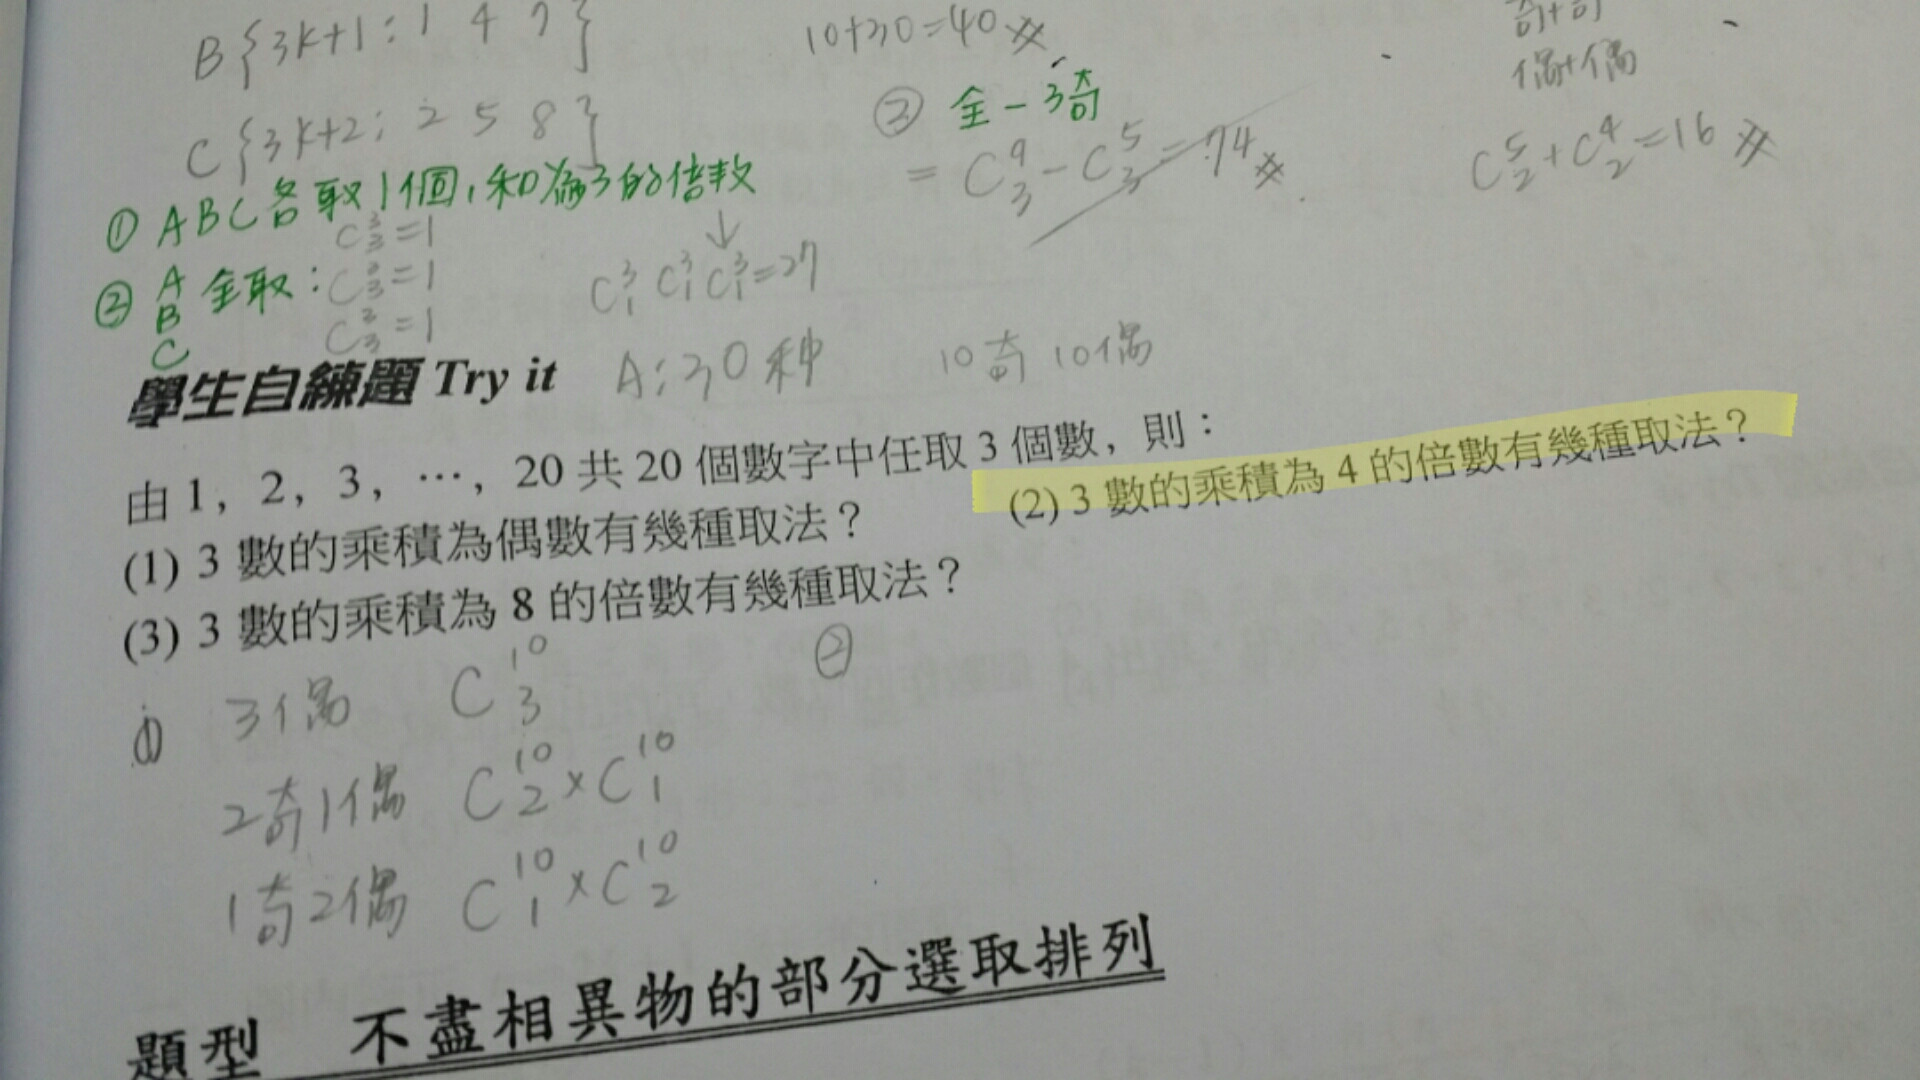 B{3k+1: 1 4 7}
C{3k+2; 2 5 8}
① ABC各取1個,和為3的倍數
C³₃=1
C³₁ C³₁ C³₁=27
② A B C 全取:
C³₃=1
C³₃=1
A:30种
10+30=40
② 全-3奇
= C⁹₃-C⁵₃=74
奇+奇
偶+偶
C⁵₂+C⁴₂=16
學生自練題 Try it
10奇 10偶
由 1, 2, 3, …, 20 共 20 個數字中任取 3 個數, 則:
(1) 3 數的乘積為偶數有幾種取法?
(2) 3 數的乘積為 4 的倍數有幾種取法?
(3) 3 數的乘積為 8 的倍數有幾種取法?
(1) 3偶 C¹⁰₃
2奇1偶 C¹⁰₂×C¹⁰₁
1奇2偶 C¹⁰₁×C¹⁰₂
②
題型 不盡相異物的部分選取排列